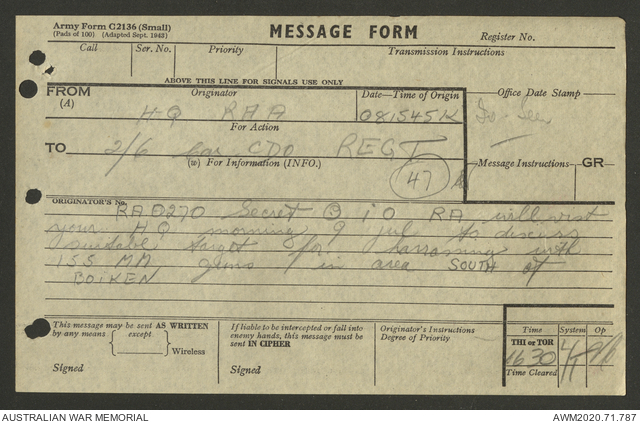 Army Form C2136 (Small)
(Pads of 100) (Adapted Sept. 1943)
MESSAGE FORM
Register No.
Call Ser. No. Priority Transmission Instructions
ABOVE THIS LINE FOR SIGNALS USE ONLY
FROM
(A)
Originator
Date—Time of Origin
Office Date Stamp
HQ RAA
081545K
To see
For Action
TO
2/6 Cav CDO REGT
(w) For Information (INFO.)
Message Instructions
GR
47
ORIGINATOR'S No.
RA0270 Secret (.) IO RA will visit
your HQ morning 9 Jul to discuss
suitable target for harrasing with
155 MM guns in area SOUTH of
BOIKEN
This message may be sent AS WRITTEN
by any means except
Wireless
Signed
If liable to be intercepted or fall into
enemy hands, this message must be
sent IN CIPHER
Signed
Originator's Instructions
Degree of Priority
Time System Op
THI or TOR
1630
Time Cleared
AUSTRALIAN WAR MEMORIAL
AWM2020.71.787